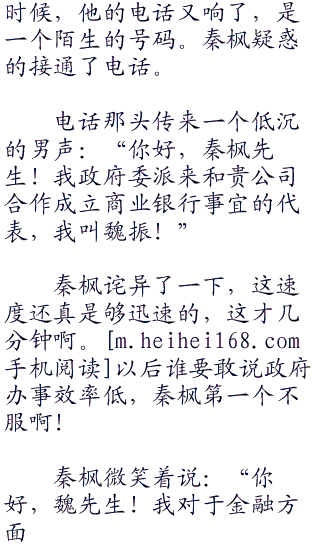 时候，他的电话又响了，是
一个陌生的号码。秦枫疑惑
的接通了电话。
电话那头传来一个低沉
的男声：“你好，秦枫先
生！我政府委派来和贵公司
合作成立商业银行事宜的代
表，我叫魏振！”
秦枫诧异了一下，这速
度还真是够迅速的，这才几
分钟啊。[m.heihei168.com
手机阅读]以后谁要敢说政府
办事效率低，秦枫第一个不
服啊！
秦枫微笑着说：“你
好，魏先生！我对于金融方
面